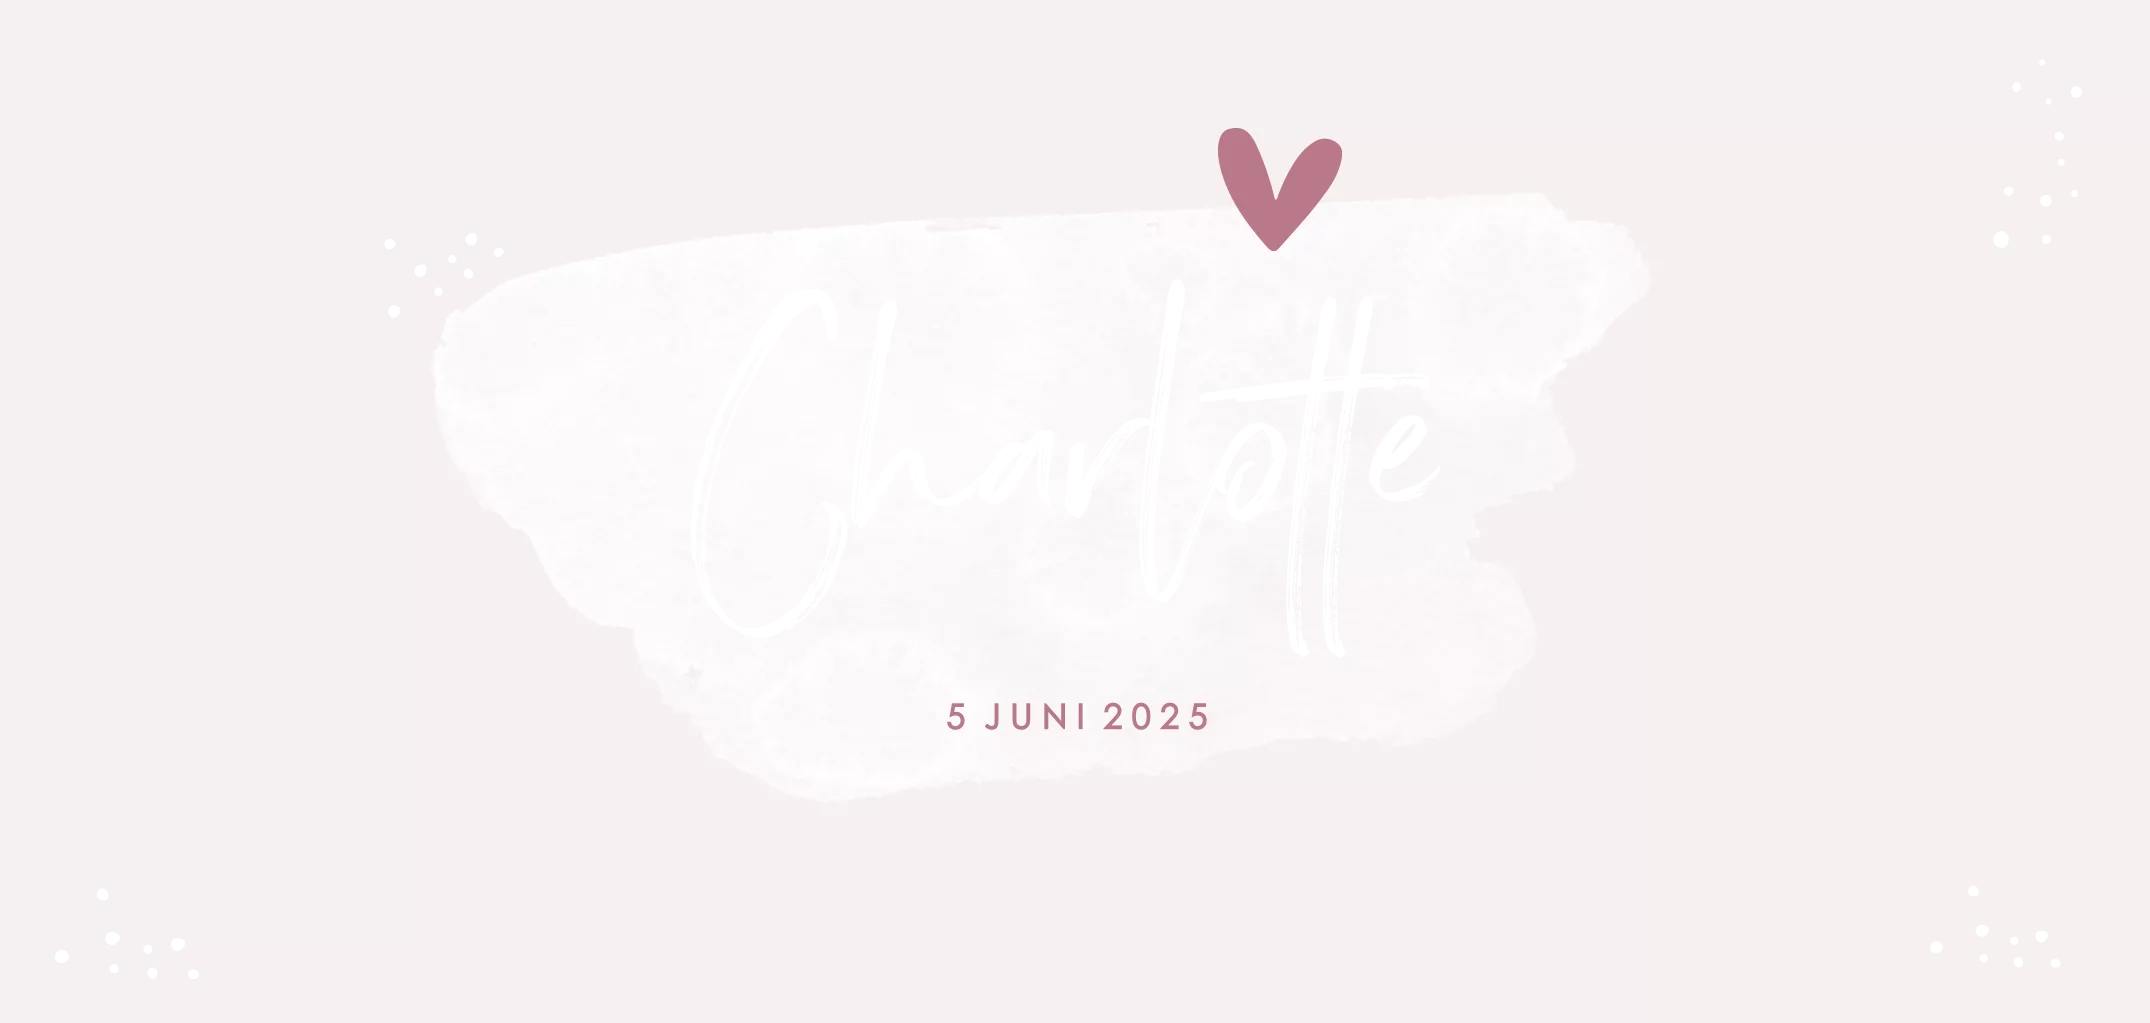 Charlotte
5 JUNI 2025